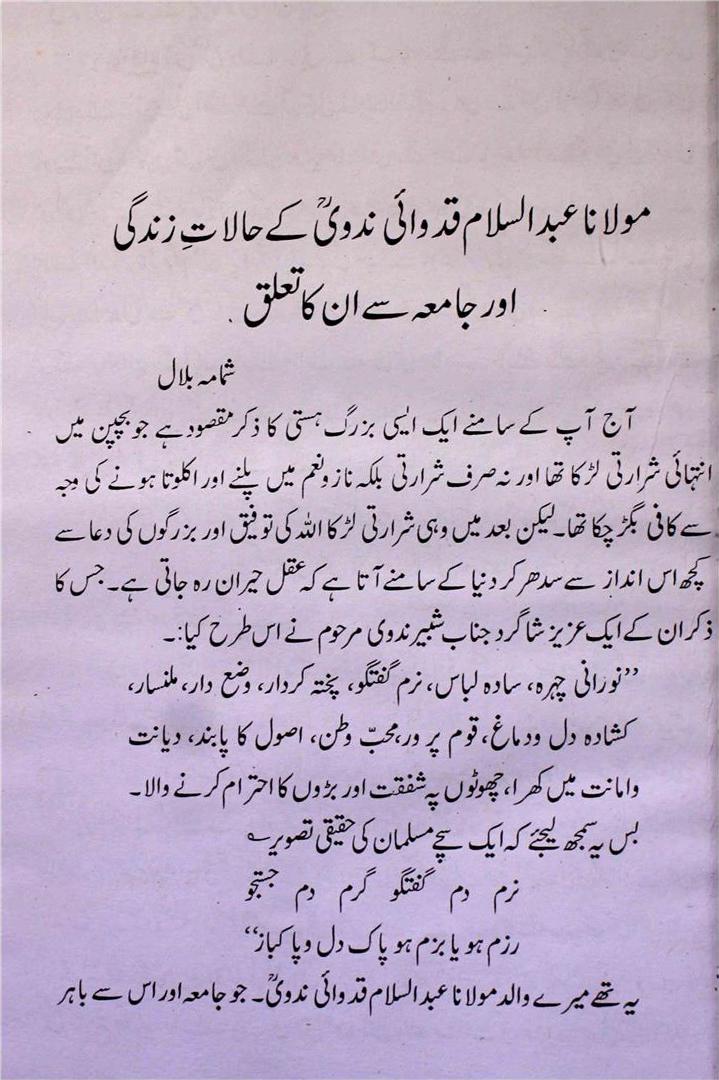 مولانا عبد السلام قدوائی ندویؒ کے حالاتِ زندگی
اور جامعہ سے ان کا تعلق
شمامہ بلال
آج آپ کے سامنے ایک ایسی بزرگ ہستی کا ذکر مقصود ہے جو بچپن میں
انتہائی شرارتی لڑکا تھا اور نہ صرف شرارتی بلکہ ناز و نعم میں پلنے اور اکلوتا ہونے کی وجہ
سے کافی بگڑ چکا تھا۔ لیکن بعد میں وہی شرارتی لڑکا اللہ کی توفیق اور بزرگوں کی دعا سے
کچھ اس انداز سے سدھر کر دنیا کے سامنے آتا ہے کہ عقل حیران رہ جاتی ہے۔ جس کا
ذکر ان کے ایک عزیز شاگرد جناب شبیر ندوی مرحوم نے اس طرح کیا:۔
”نورانی چہرہ، سادہ لباس، نرم گفتگو، پختہ کردار، وضع دار، ملنسار،
کشادہ دل و دماغ، قوم پرور، محبّ وطن، اصول کا پابند، دیانت
و امانت میں کھرا، چھوٹوں پہ شفقت اور بڑوں کا احترام کرنے والا۔
بس یہ سمجھ لیجئے کہ ایک سچے مسلمان کی حقیقی تصویر؎
نرم دم گفتگو گرم دم جستجو
رزم ہو یا بزم ہو پاک دل و پاکباز“
یہ تھے میرے والد مولانا عبد السلام قدوائی ندویؒ۔ جو جامعہ اور اس سے باہر